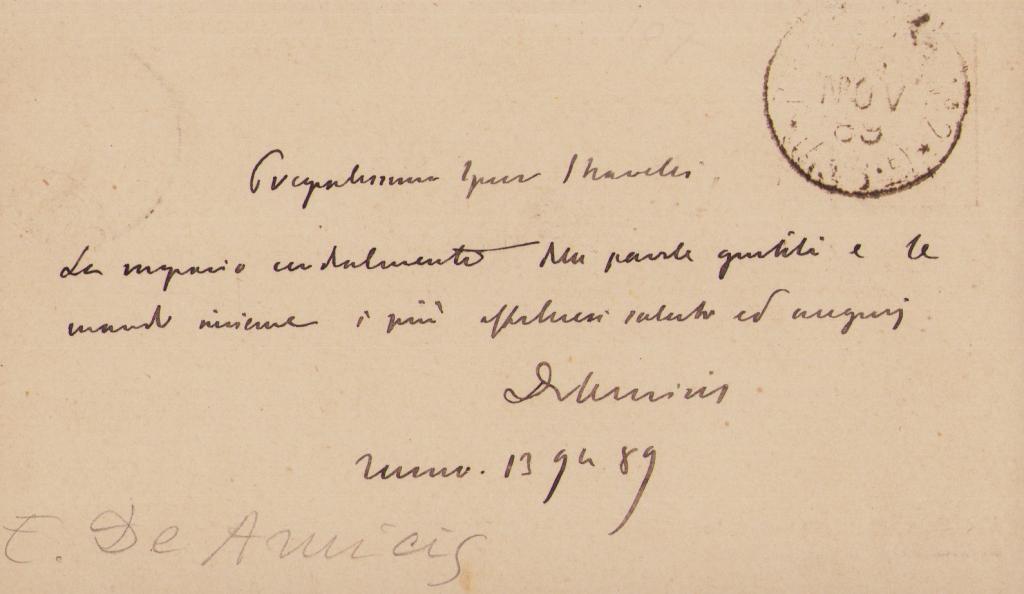 NOV
89
Pregiatissimo Signor
La ringrazio cordialmente delle parole gentili e le
mando insieme i più affettuosi saluti ed augurj
DeAmicis
13 9bre 89
E. De Amicis